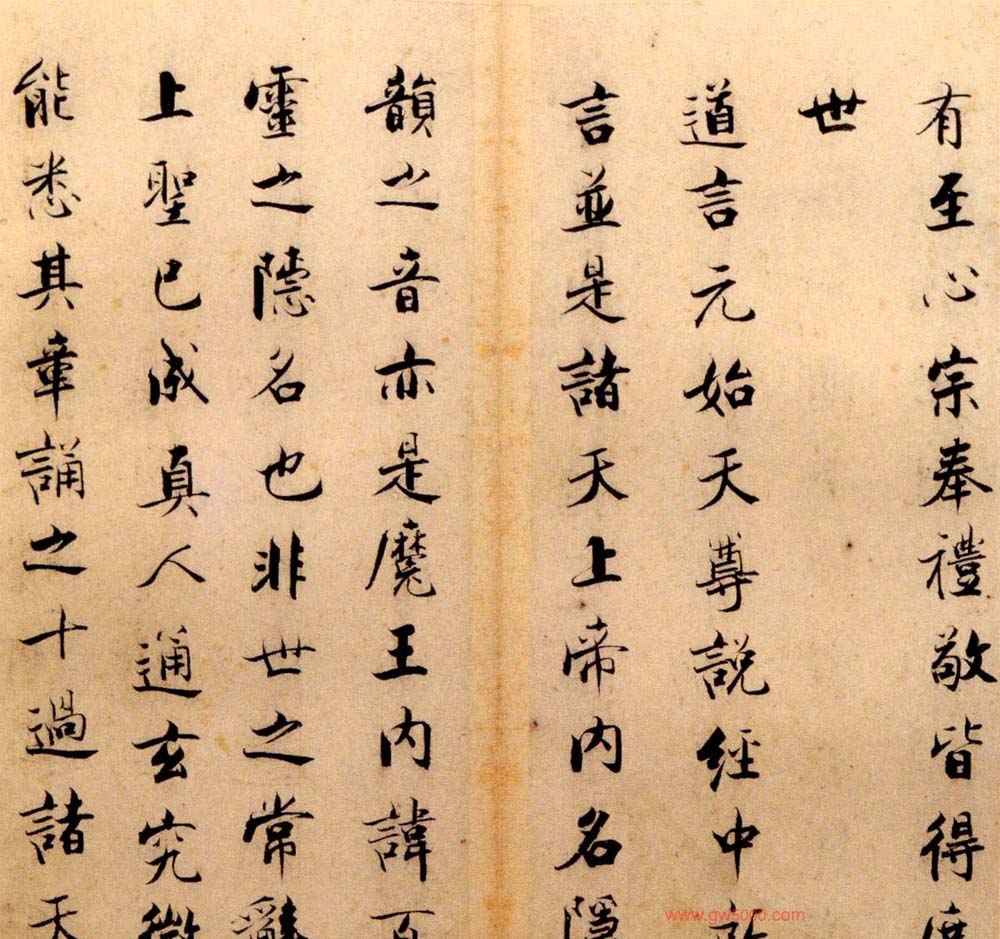 有至心宗奉禮敬皆得度
世
道言元始天尊說經中所
言並是諸天上帝內名隱
韻之音亦是魔王內諱百
靈之隱名也非世之常辭
上聖已成真人通玄究微
能悉其章誦之十過諸天
www.gw5000.com